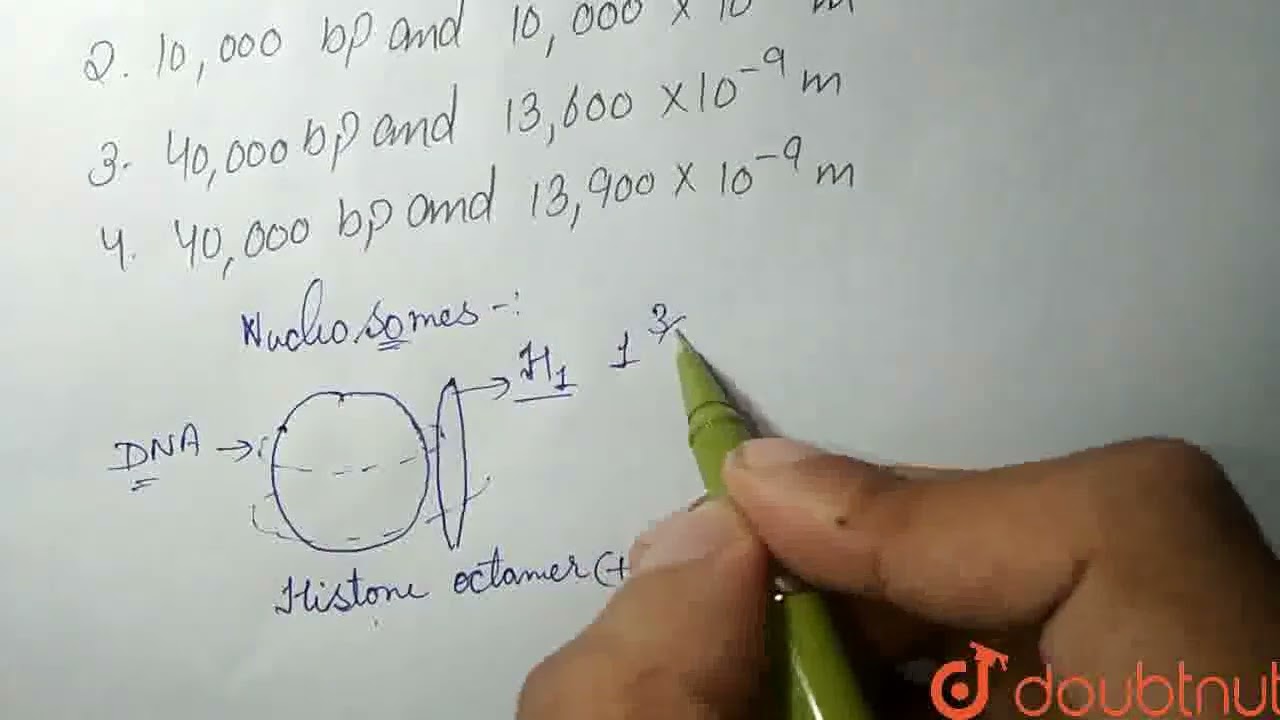 2. 10,000 bp and 10,000 × 10 m
3. 40,000 bp and 13,600 × 10⁻⁹ m
4. 40,000 bp and 13,900 × 10⁻⁹ m
Nucleosomes -:
H₁ 1 3/
DNA →
Histone octamer (+
doubtnut